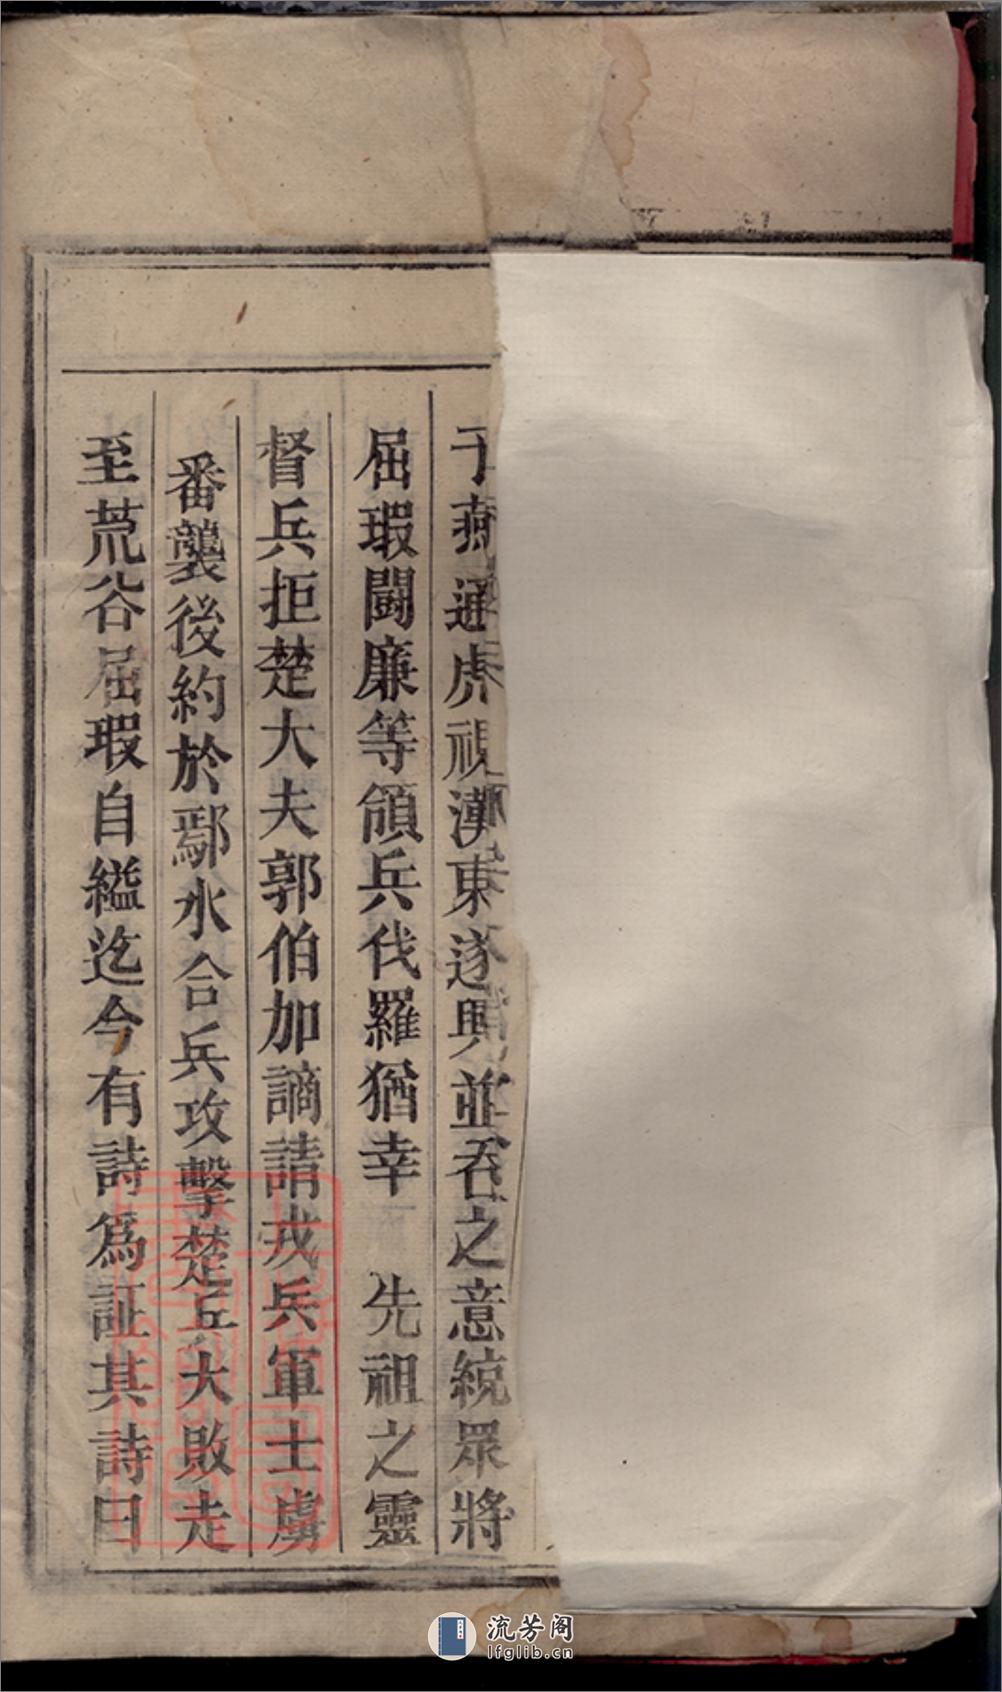 于燕通虎視漢東遂興並吞之意統眾將
屈瑕鬬廉等領兵伐羅猶幸 先祖之靈
督兵拒楚大夫郭伯加謫請戎兵軍士虜
番襲後約於鄢水合兵攻擊楚兵大敗走
至荒谷屈瑕自縊迄今有詩為証其詩曰
流芳阁
lfglib.cn